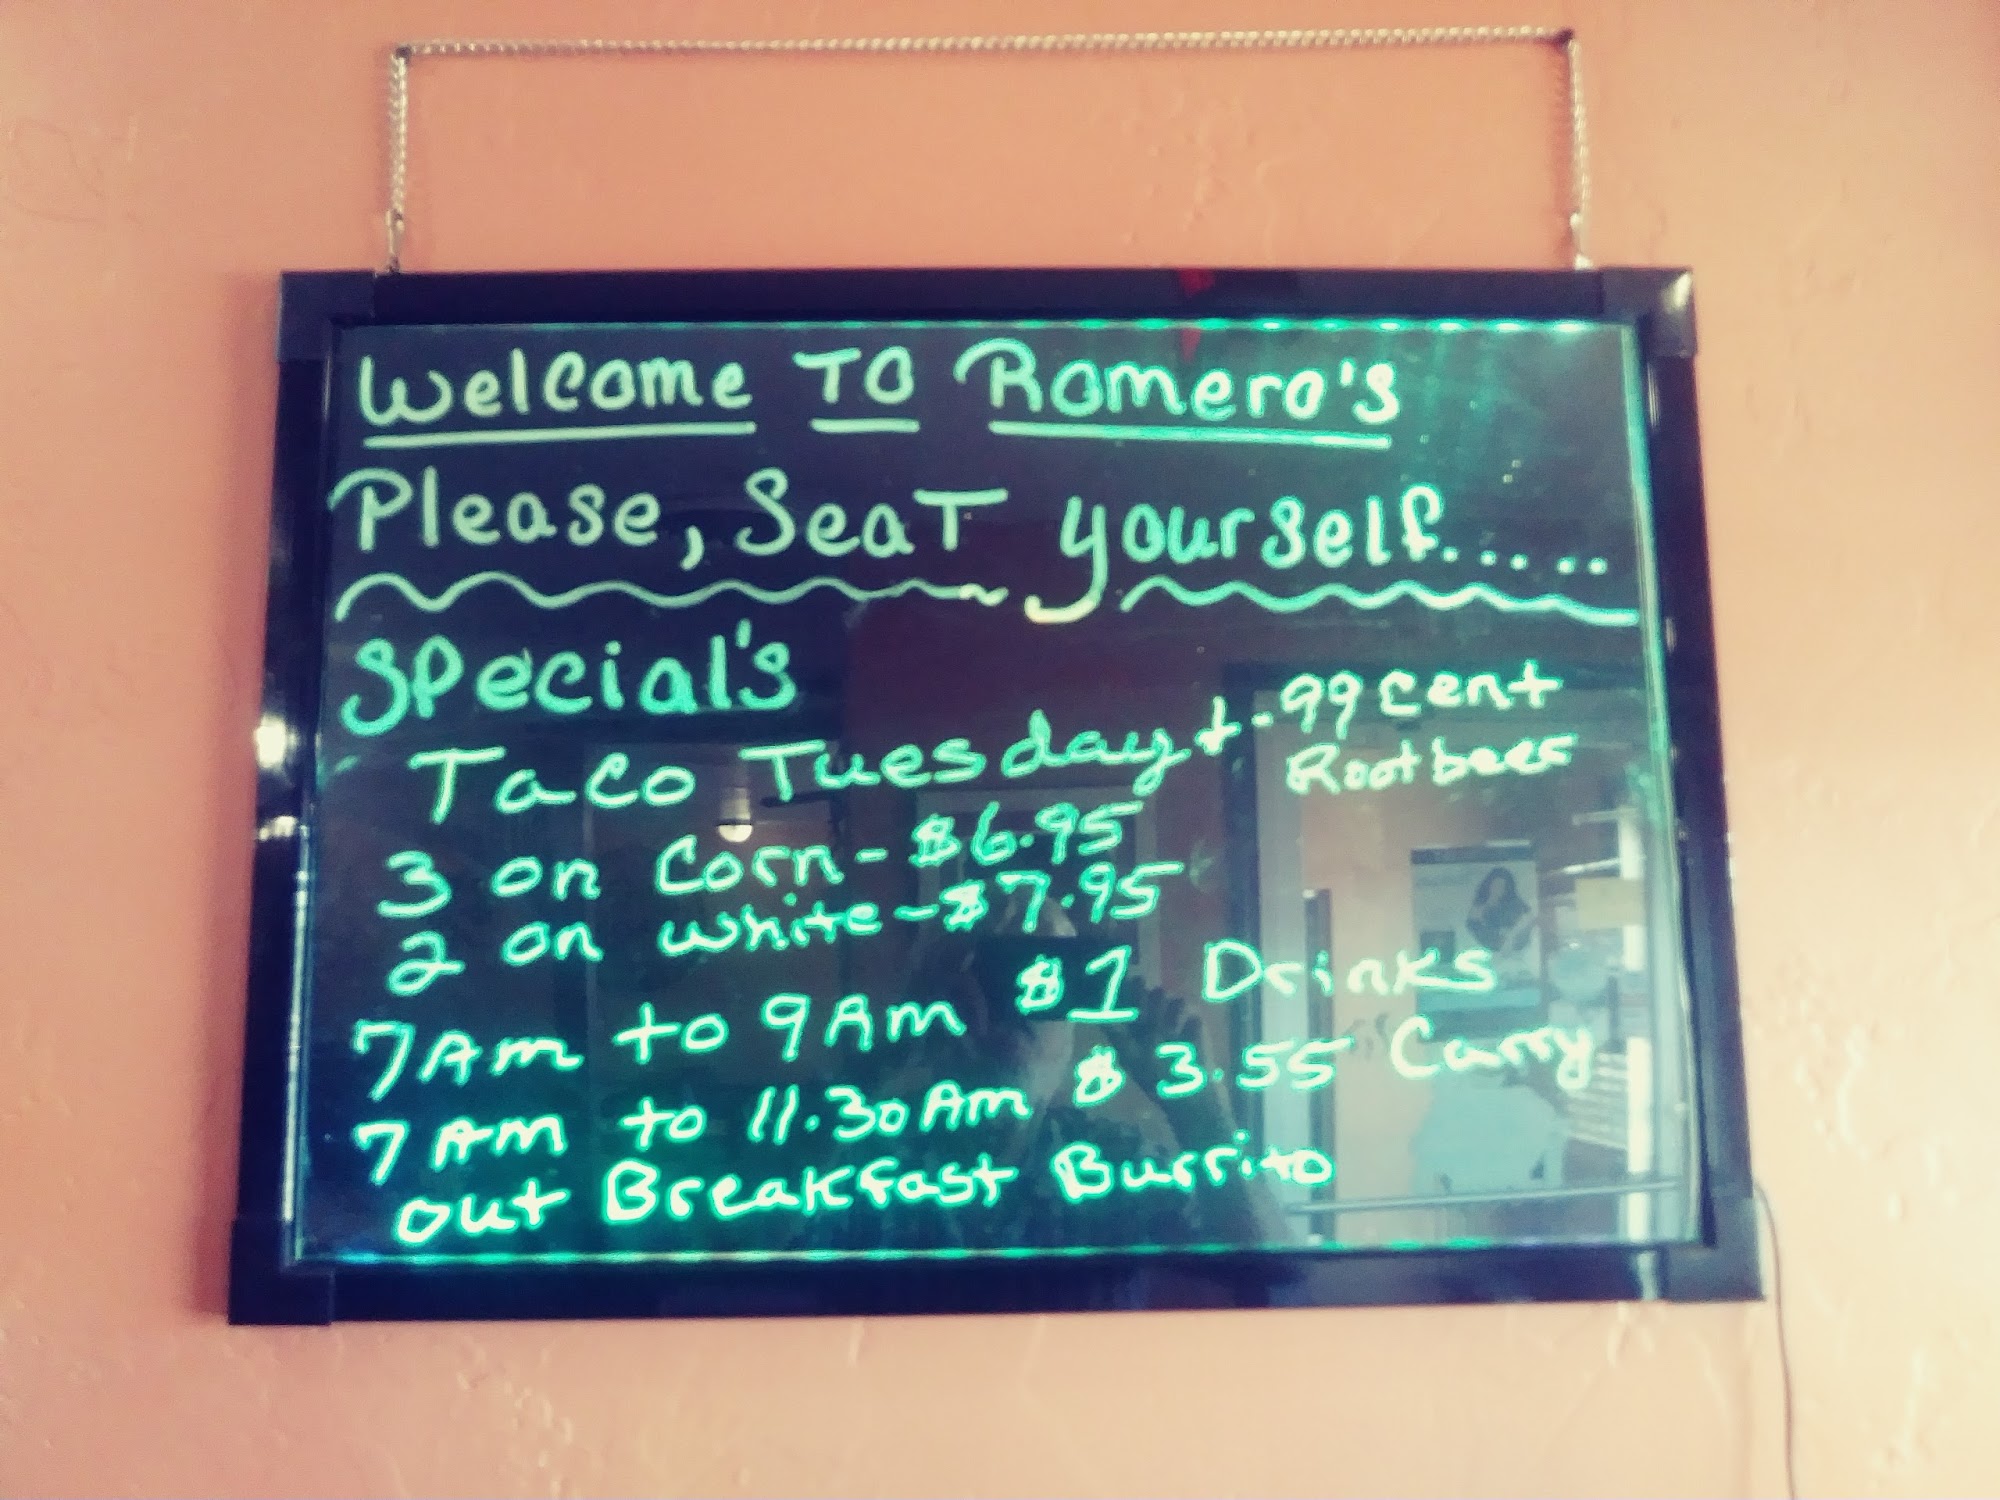 Welcome To Romero's
Please, Seat yourself.....
Special's
Taco Tuesday + .99 cent
Rootbeer
3 on Corn - $6.95
2 on white - $7.95
7Am to 9Am $1 Drinks
7Am to 11.30Am $3.55 Carry
out Breakfast Burrito